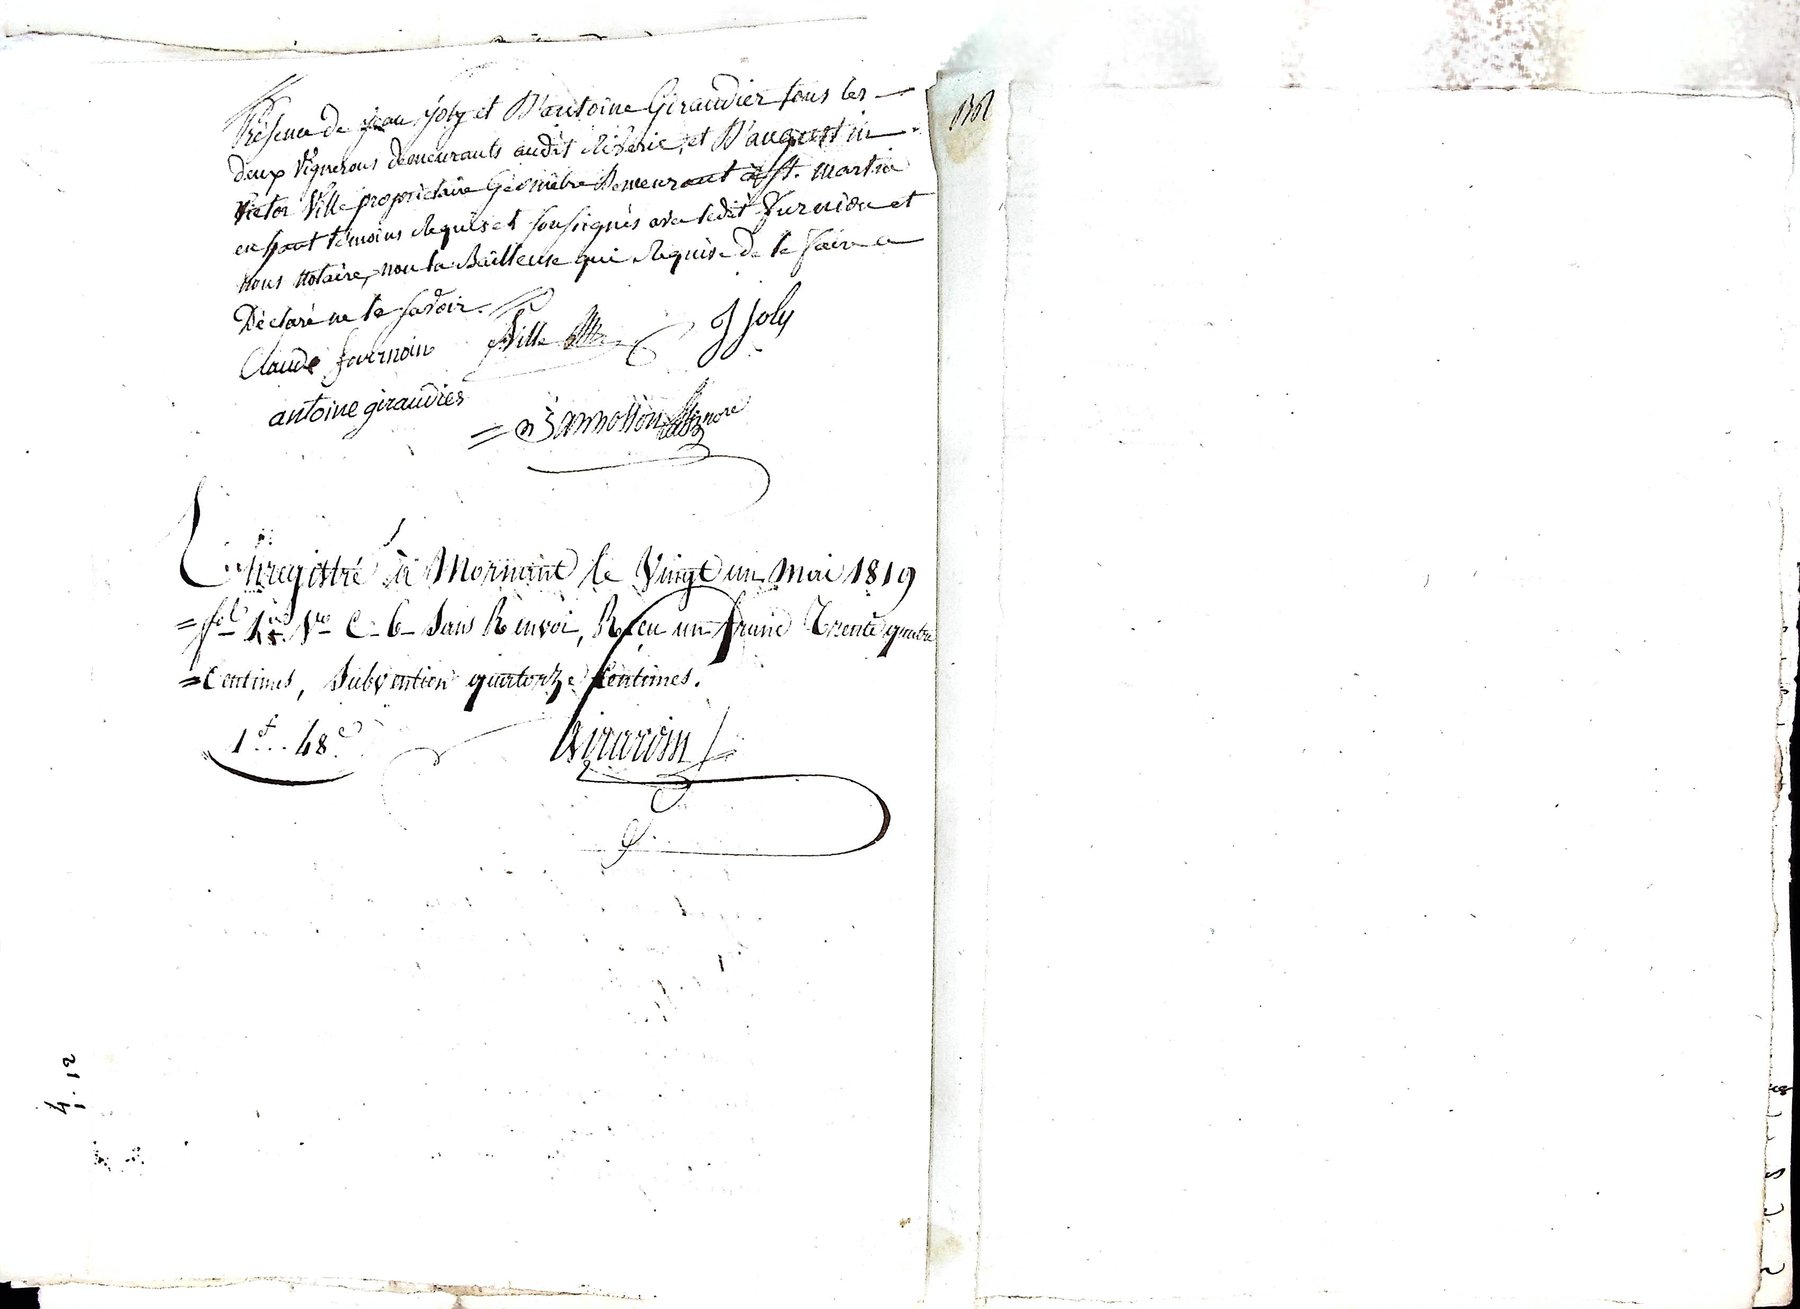 Présence de jean joly et D'antoine Giraudier tous les
deux Vignerons demeurants audit Riverie, et D'augustin
Victor Ville propriétaire Géomètre Demeurant à St. martin
en haut témoins Requis et soussignés avec ledit Furnion et
nous Notaire, non la Bailleuse qui Requise de le faire a
Déclaré ne le savoir.
Claude furnoin Ville J Joly
antoine giraudier
Enregistré à Mornant le Vingt un Mai 1819
fol Vo C. 6 Sans Renvoi, Reçu un franc Trente quatre
Centimes, Subvention quatorze Centimes.
1f.. 48c Girardin
4. 12